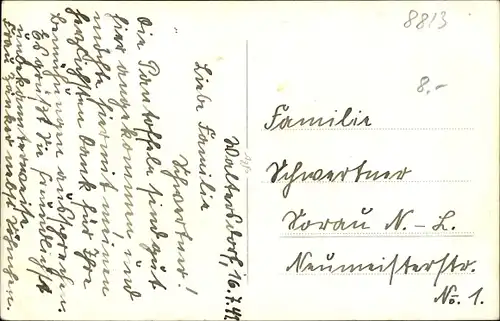 Waltersdorf, 16.7.42
Liebe Familie
Schwertner!
Die Pantoffeln sind gut
hier angekommen, und
möchte hiermit meinen
herzlichsten Dank für Ihre
Bemühungen aussprechen.
Es grüßt Sie freundlichst
unbekannterweise
Frau Zänker nebst Söhnchen
8813
8.-
Familie
Schwertner
Sorau N.-L.
Neumeisterstr.
No. 1.